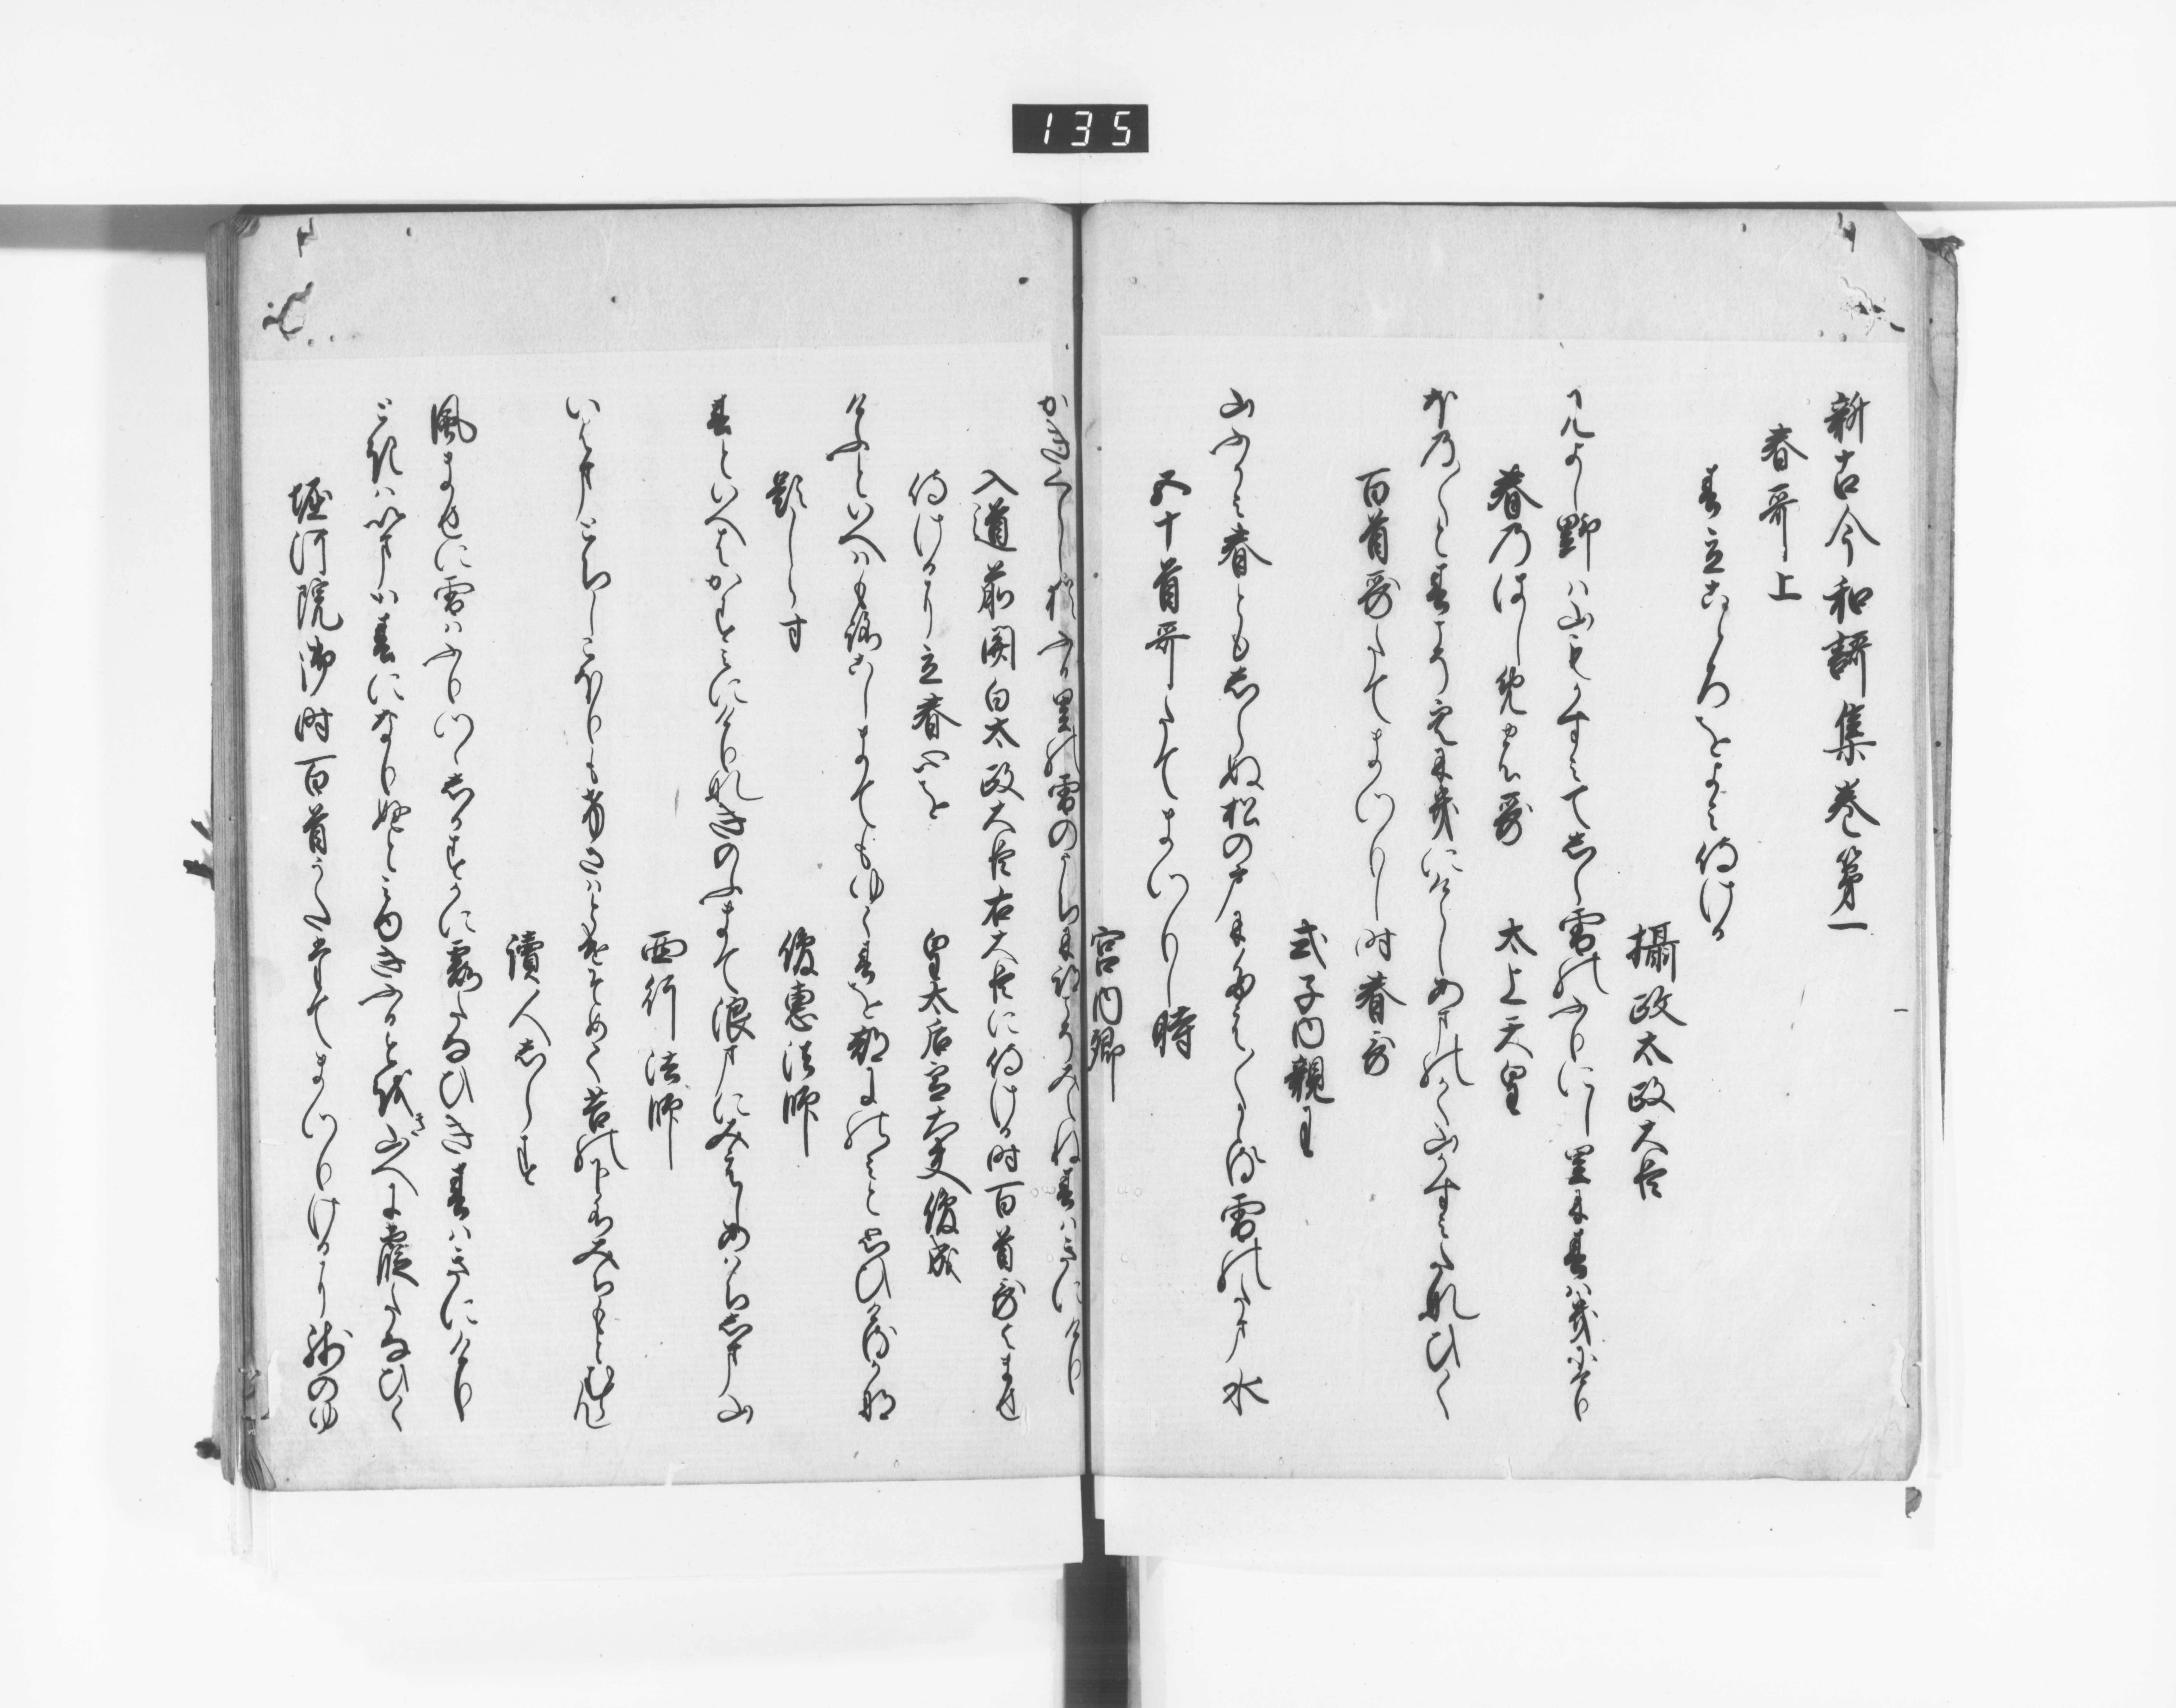 135
新古今和謌集巻第一
春哥上
春立こゝろをよみ侍ける
攝政太政大臣
みよし野は山もかすみてしら雪のふりにし里に春はきにけり
春のはしめの哥
太上天皇
ほの〱と春こそ空にきにけらしあまのかく山かすみたなひく
百首哥たてまつりし時春哥
式子内親王
山ふかみ春ともしらぬ松の戸にたえ〱かゝる雪の玉水
五十首哥たてまつりし時
宮内卿
かきくらし猶ふる里の雪のうちに跡こそみえね春はきにけり
入道前関白太政大臣右大臣に侍ける時百首哥よませ
侍けるに立春心を
皇太后宮大夫俊成
けふといへはもろこしまてもゆく春を都にのみとおもひけるかな
題しらす
俊惠法師
春といへはかすみにけりなきのふまて浪まにみえしあはち嶋山
西行法師
いはまとちしこほりもけさはとけそめて苔の下水みちもとむらん
讀人しらす
風ませに雪はふりつゝしかすかに霞たなひき春はきにけり
時は今は春になりぬとみゆきふる遠き山へに霞たなひく
堀河院御時百首うたたてまつりけるに残のゆ